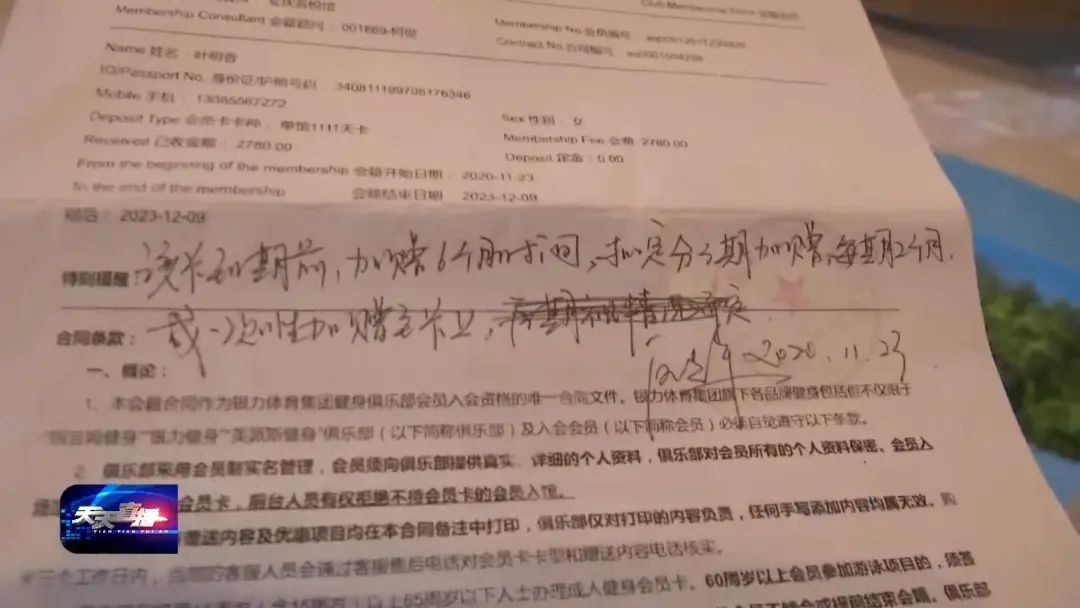 Membership Consultant 会籍顾问： 001869-柯俊
Membership No.会员编号
Contract No.合同编号
Name 姓名：叶明香
ID/Passport No. 身份证/护照号码： 340811199708176346
Mobile 手机： 13085567272
Sex 性别：女
Deposit Type 会员卡卡种： 单馆1111天卡
Membership Fee 会费 2780.00
Received 已收金额： 2780.00
Deposit 定金：0.00
From the beginning of the membership 会籍开始日期： 2020-11-23
To the end of the membership 会籍结束日期 2023-12-09
备注： 2023-12-09
该卡到期前，加赠6个月时间，拟定分3期加赠，每期2个月，
特别提醒
或一次性加赠至卡上，
合同条款：
2020.11.23
一、概论：
1、本会籍合同作为银力体育集团健身俱乐部会员入会资格的唯一合同文件。银力体育集团旗下各品牌健身包括但不仅限于
健身""银力健身""美派斯健身"俱乐部（以下简称俱乐部）及入会会员（以下简称会员）必须自觉遵守以下条款。
2、俱乐部采用会员制实名管理，会员须向俱乐部提供真实、详细的个人资料，俱乐部对会员所有的个人资料保密。会员入
会员卡，前台人员有权拒绝不持会员卡的会员入馆。
赠送内容及优惠项目均在本合同备注中打印，俱乐部仅对打印的内容负责，任何手写添加内容均属无效。购
三个工作日内，当司的客服人员会通过客服售后电话对会员卡卡型和赠送内容电话核实。
以上65周岁以下人士办理成人健身会员卡。60周岁以上会员参加游泳项目的，须签
俱乐部
天天直播
TIAN TIAN ZHI BO